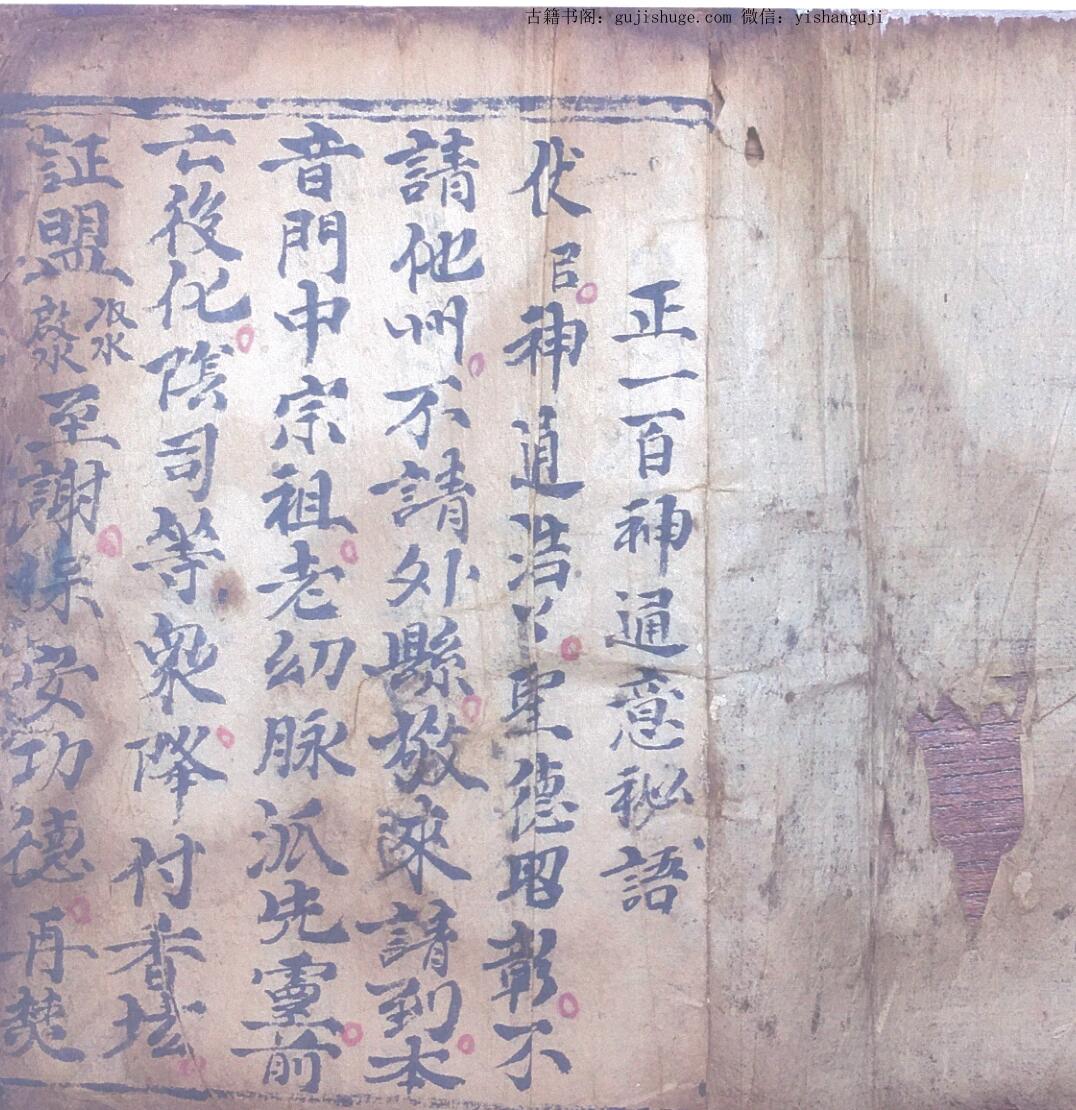 古籍书阁：gujishuge.com 微信：yishanguji
正一百神通意秘語
伏㠯神通浩〻聖德昭彰不
請他州不請外縣敬來請到本
音門中宗祖老幼脉派先靈前
亡後化陰司等衆降付香坛
証盟水水至謝保安功德再焚